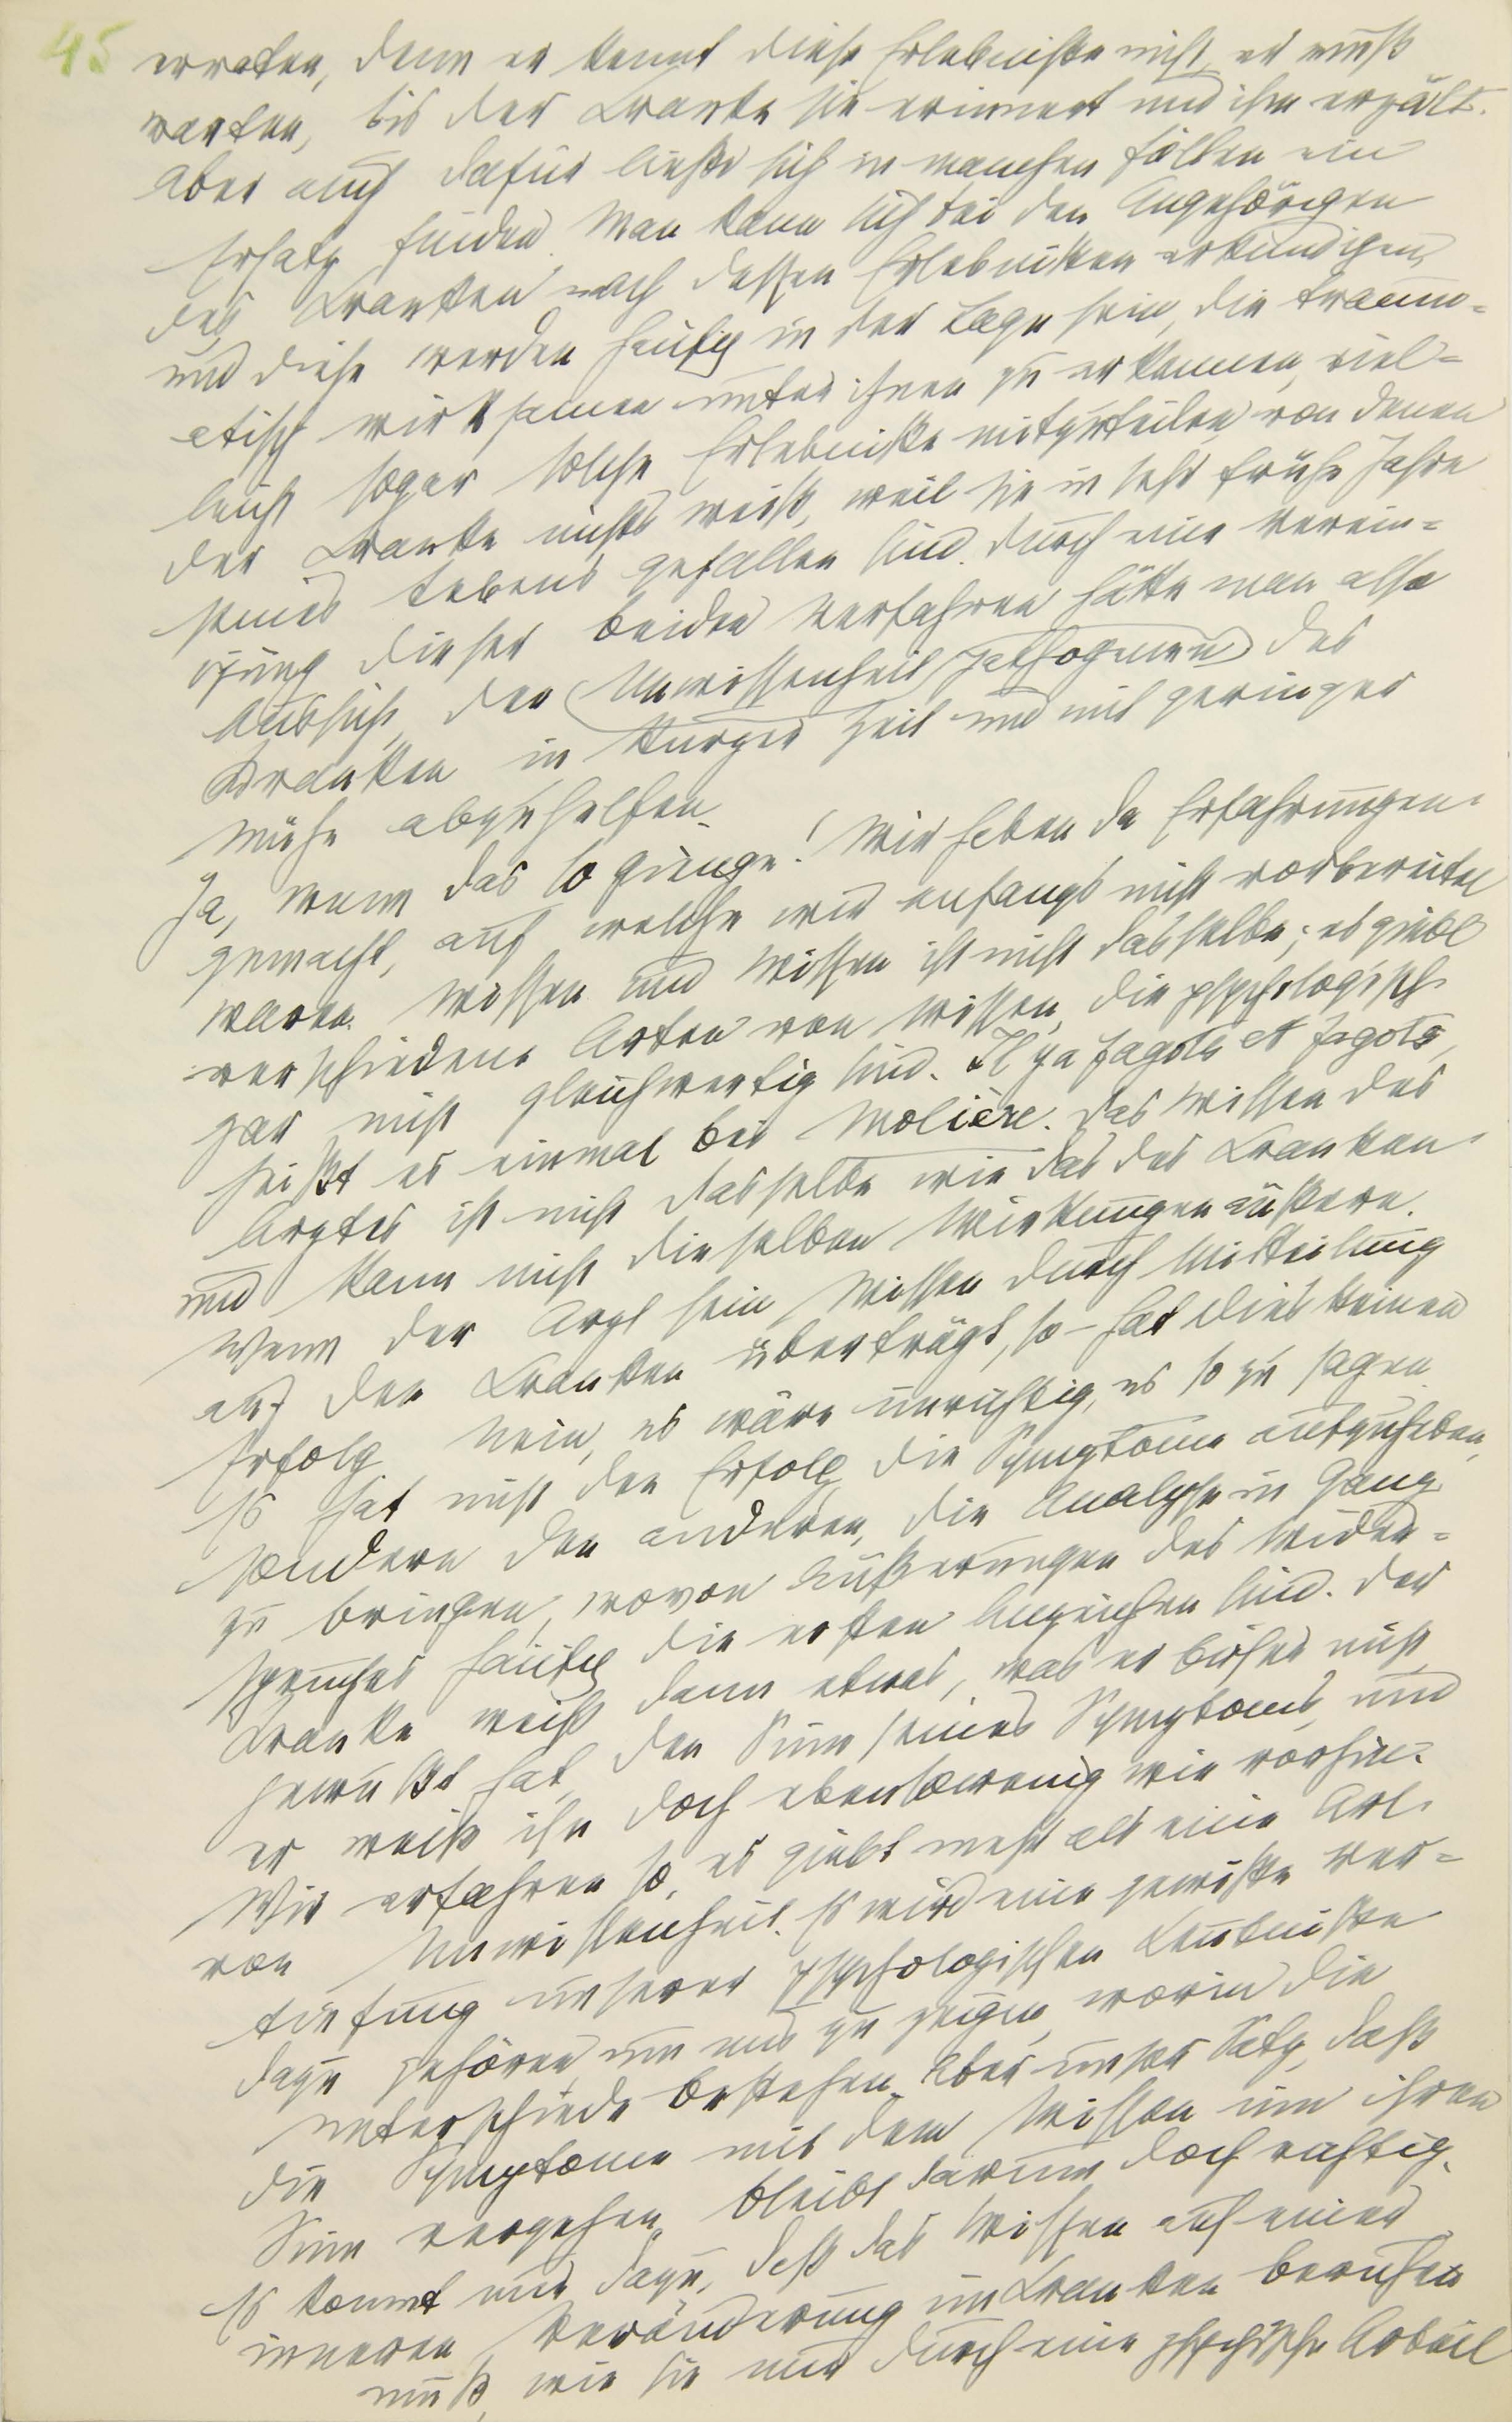 45
erraten, denn er kennt diese Erlebnisse nicht, er muß
warten, bis der Kranke sie erinnert und ihm erzält.
Aber auch dafür ließe sich in manchen Fällen ein
Ersatz finden. Man kann sich bei den Angehörigen
des Kranken nach dessen Erlebnissen erkundigen,
und diese werden häufig in der Lage sein, die traum=
atisch wirksamen unter ihnen zu erkennen, viel=
leicht sogar solche Erlebnisse mitzuteilen, von denen
der Kranke nichts weiß, weil sie in sehr frühe Jahre
seines Lebens gefallen sind. Durch eine Verein=
igung dieser beiden Verfahren hätte man also
Aussicht, der (Unwissenheit) pathogenen) des
Kranken in kurzer Zeit und mit geringer
Mühe abzuhelfen.
Ja, wenn das so ginge! Wir haben da Erfahrungen
gemacht, auf welche wir anfangs nicht vorbereitet
waren. Wissen und Wissen ist nicht dasselbe; es giebt
verschiedene Arten von Wissen, die psychologisch
gar nicht gleichwertig sind. Il y a fagots et fagots,
heißt es einmal bei Molière. Das Wissen des
Arztes ist nicht dasselbe wie das des Kranken
und kann nicht dieselben Wirkungen äußern.
Wenn der Arzt sein Wissen durch Mitteilung
auf den Kranken überträgt, so hat dies keinen
Erfolg. Nein, es wäre unrichtig, es so zu sagen.
Es hat nicht den Erfolg, die Symptome aufzuheben,
sondern den anderen, die Analyse in Gang
zu bringen, wovon Äußerungen des Wider=
spruches häufig die ersten Anzeichen sind. Der
Kranke weiß dann etwas, was er bisher nicht
gewußt hat, den Sinn seines Symptoms, und
er weiß ihn doch ebensowenig wie vorhin.
Wir erfahren so, es giebt mehr als eine Art
von Unwissenheit. Es wird eine gewisse Ver=
tiefung unserer psychologischen Kenntnisse
dazu gehören, um uns zu zeigen, worin die
Unterschiede bestehen. Aber unser Satz, daß
die Symptome mit dem Wissen um ihren
Sinn vergehen, bleibt darum doch richtig.
Es kommt nur dazu, daß das Wissen auf einer
inneren Veränderung im Kranken beruhen
muß, wie sie nur durch eine psychische Arbeit